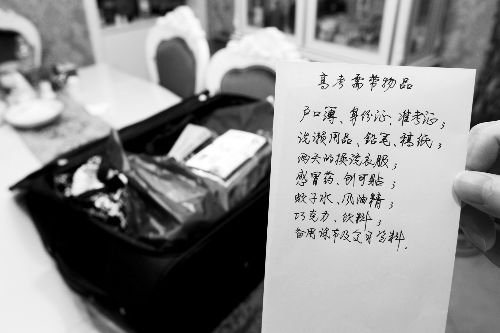 高考需带物品
户口簿、身份证、准考证;
洗濑用品、铅笔、稿纸;
两天的换洗衣服;
感冒药、创可贴;
蚊子水、风油精;
巧克力、饮料;
备用课本及复习资料.